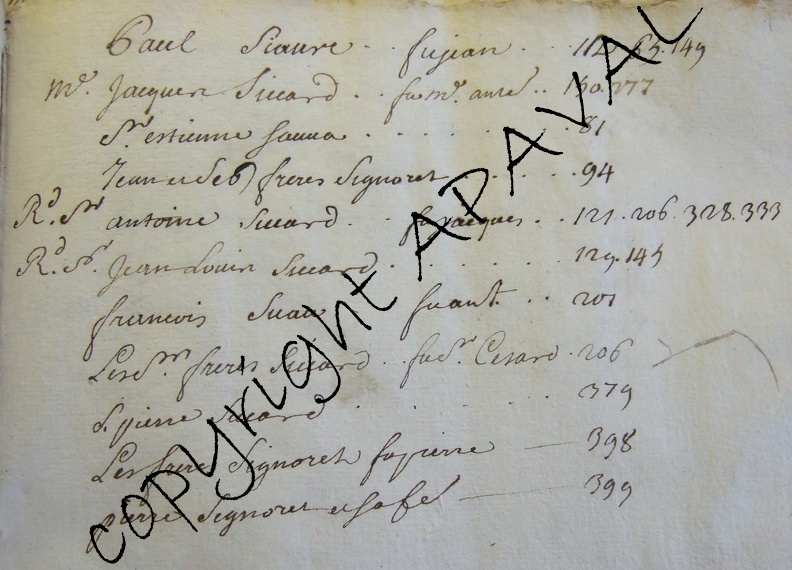 Paul Siaure . . fujean . . 112. 65. 149
Me. Jacques Siccard . fu me. ante . . 130. 277
Sr estienne sauua . . . . . 81
Jean et Seb) freres Signoret . . . 94
Rd. Sr antoine Siccard . . fu jacques . . 121. 206. 328. 333
Rd. Sr. Jean Louis Siccard . . . . 129. 145
francois Suau fu ant . . 201
Les srs freres Siccard . fu sr. Cesard . 206
S. pierre Siccard . . . . 379
Les frere Signoret fu pierre — 398
pierre Signoret et sa fe — 399
copyright APAVAL